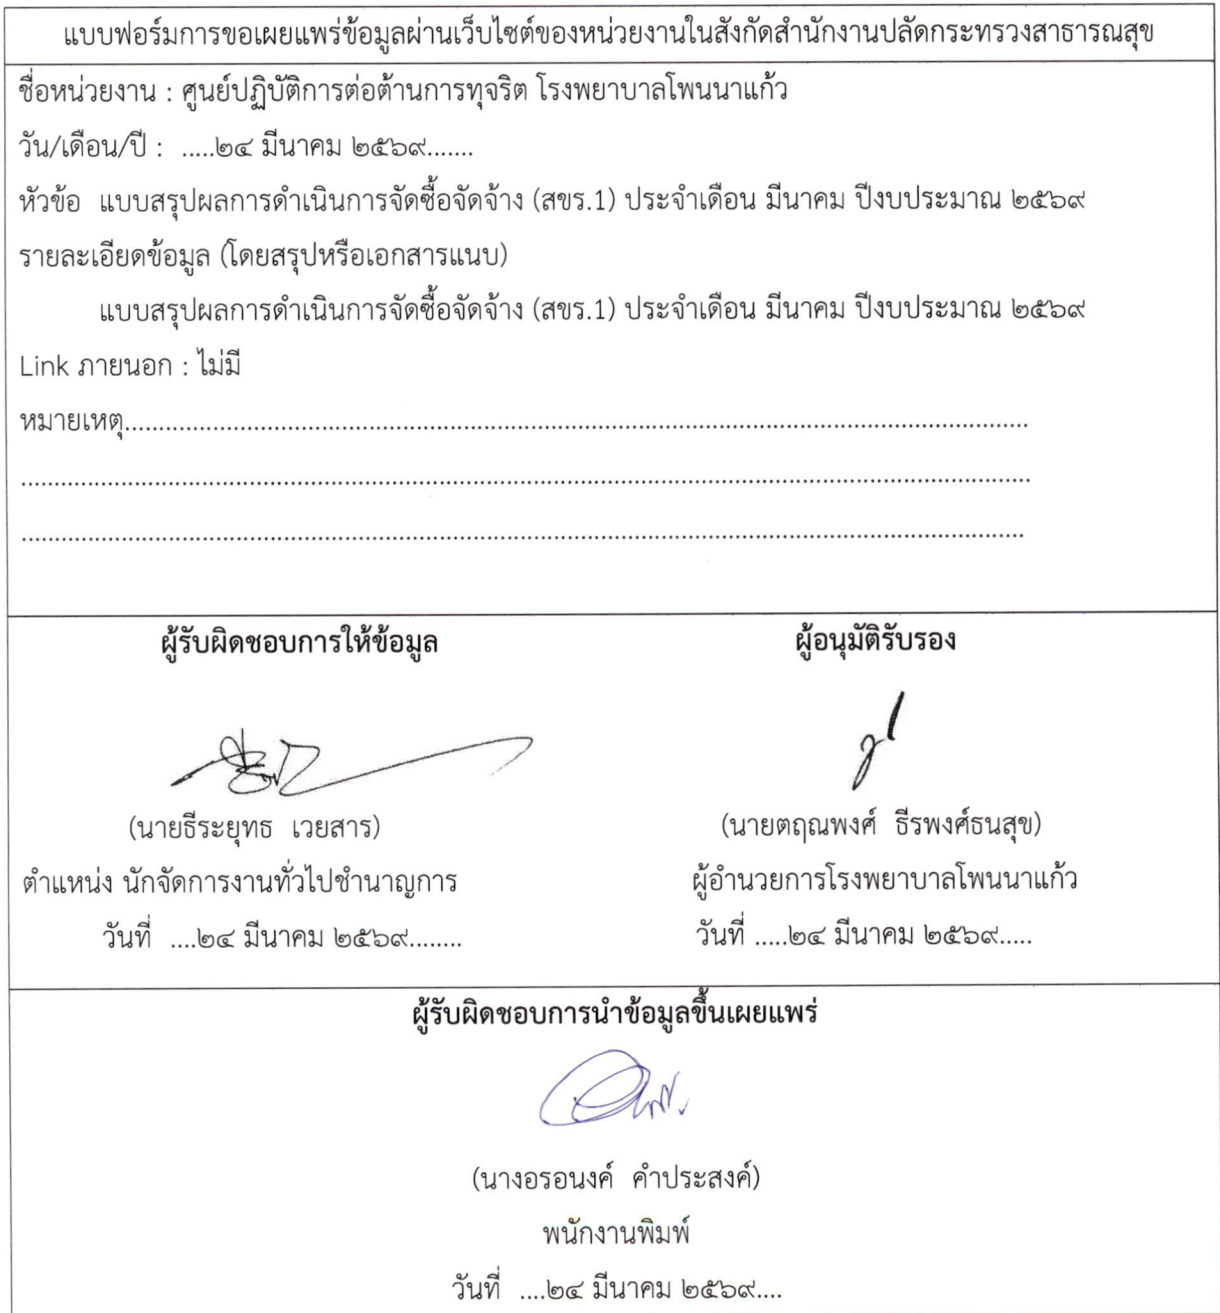 แบบฟอร์มการขอเผยแพร่ข้อมูลผ่านเว็บไซต์ของหน่วยงานในสังกัดสำนักงานปลัดกระทรวงสาธารณสุข
ชื่อหน่วยงาน : ศูนย์ปฏิบัติการต่อต้านการทุจริต โรงพยาบาลโพนนาแก้ว
วัน/เดือน/ปี : .....๒๔ มีนาคม ๒๕๖๙.......
หัวข้อ แบบสรุปผลการดำเนินการจัดซื้อจัดจ้าง (สขร.1) ประจำเดือน มีนาคม ปีงบประมาณ ๒๕๖๙
รายละเอียดข้อมูล (โดยสรุปหรือเอกสารแนบ)
แบบสรุปผลการดำเนินการจัดซื้อจัดจ้าง (สขร.1) ประจำเดือน มีนาคม ปีงบประมาณ ๒๕๖๙
Link ภายนอก : ไม่มี
หมายเหตุ....................................................................................................................................
....................................................................................................................................................
....................................................................................................................................................
ผู้รับผิดชอบการให้ข้อมูล ผู้อนุมัติรับรอง
(นายธีระยุทธ เวยสาร) (นายตฤณพงศ์ ธีรพงศ์ธนสุข)
ตำแหน่ง นักจัดการงานทั่วไปชำนาญการ ผู้อำนวยการโรงพยาบาลโพนนาแก้ว
วันที่ ....๒๔ มีนาคม ๒๕๖๙........ วันที่ .....๒๔ มีนาคม ๒๕๖๙.....
ผู้รับผิดชอบการนำข้อมูลขึ้นเผยแพร่
(นางอรอนงค์ คำประสงค์)
พนักงานพิมพ์
วันที่ ....๒๔ มีนาคม ๒๕๖๙....